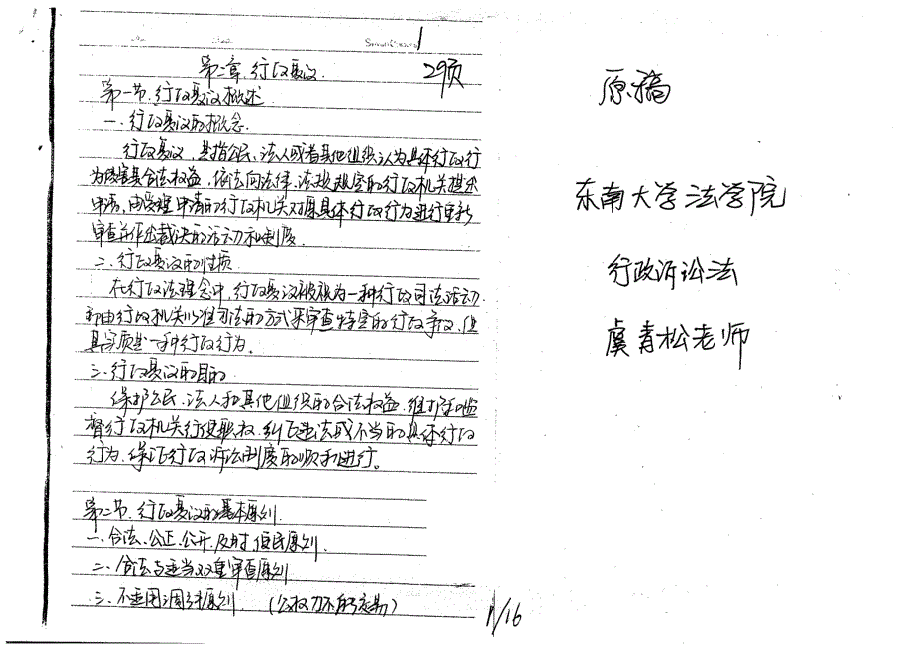 1
29页
第二章 行政复议
第一节 行政复议概述
一、行政复议的概念
行政复议,是指公民、法人或者其他组织认为具体行政行
为侵害其合法权益,依法向法律、法规规定的行政机关提出
申请,由受理申请的行政机关对原具体行政行为进行重新
审查并作出裁决的活动和制度
二、行政复议的性质
在行政法理念中,行政复议被视为一种行政司法活动
即由行政机关以准司法的方式来审查特定的行政争议,但
其实质是一种行政行为。
三、行政复议的目的
保护公民、法人和其他组织的合法权益,维护和监
督行政机关行使职权,纠正违法或不当的具体行政
行为,保证行政诉讼制度的顺利进行。
第二节、行政复议的基本原则
一、合法、公正、公开、及时、便民原则
二、合法与适当双重审查原则
三、不适用调解原则 (公权力不能交易)
1/16
原稿
东南大学法学院
行政诉讼法
虞青松老师